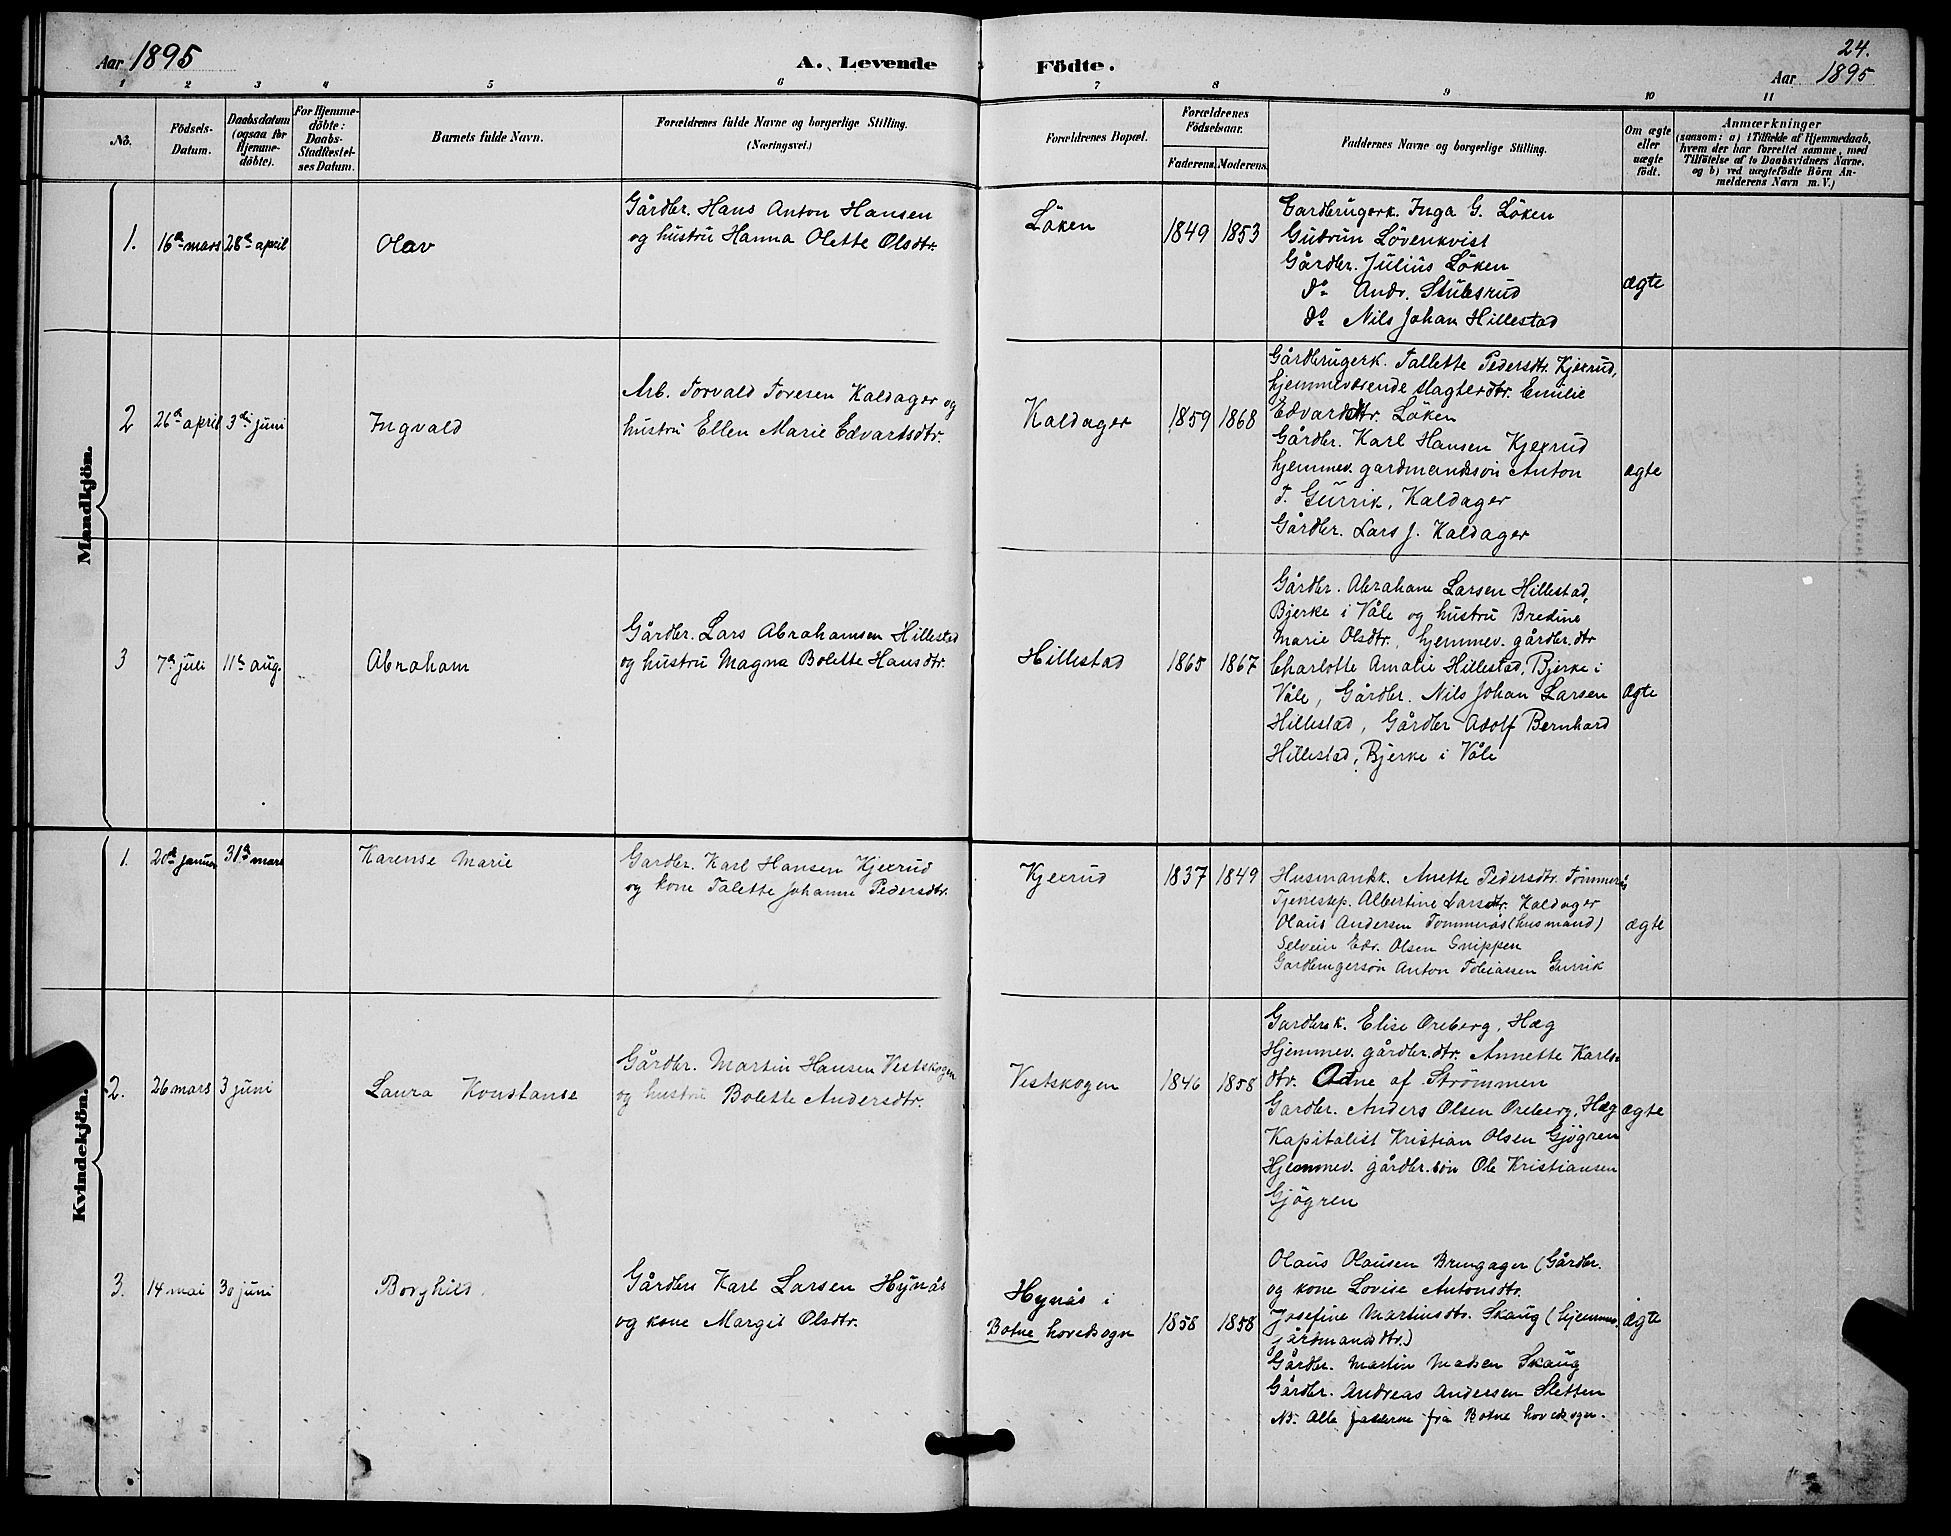 Aar 1895
A. Levende
Födte.
24.
Aar 1895
1 2 3 4 5 6 7 8 9 10 11
No.
Födsels-
Datum.
Daabsdatum
(ogsaa for
Hjemme-
döbte).
For Hjemme-
döbte:
Daabs-
Stadfæstel-
ses Datum.
Barnets fulde Navn.
Forældrenes fulde Navne og borgerlige Stilling.
(Næringsvei.)
Forældrenes Bopæl.
Forældrenes
Födselsaar.
Faderens. Moderens.
Faddernes Navne og borgerlige Stilling.
Om ægte
eller
uægte
födt.
Anmærkninger
(saasom: a) i Tilfælde af Hjemmedaab,
hvem der har forrettet samme, med
Tilföielse af to Daabsvidners Navne.
og b) ved uægtefödte Börn An-
melderens Navn m. V.)
Mandkjön.
1. 16de mars 28de april Olav
Gårdbr. Hans Anton Hansen
og hustru Hanna Olette Olsdtr.
Löken 1849 1853
Gardbrugerk. Inga G. Löken
Gudrun Lövenkvist
Gårdbr. Julius Löken
do Andr. Stubsrud
do Nils Johan Hillestad
ægte
2 26de april 3die juni Ingvald
Arb. Torvald Toresen Kaldager og
hustru Ellen Marie Edvartsdtr.
Kaldager 1859 1868
Gårdbrugerk. Tallette Pedersdtr. Kjexrud,
hjemmeværende slagterdtr. Emilie
Edvardsdtr. Löken
Gårdbr. Karl Hansen Kjexrud
hjemmev. gardmandssön Anton
T. Gurrik, Kaldager
Gårdbr. Lars J. Kaldager
ægte
3 7de juli 11te aug. Abraham
Gårdbr. Lars Abrahamsen Hillestad
og hustru Magna Bolette Hansdtr.
Hillestad 1865 1867
Gårdbr. Abraham Larsen Hillestad,
Bjerke i Våle og hustru Bredine
Marie Olsdtr., hjemmev. gårdbr.dtr
Charlotte Amalie Hillestad, Bjerke i
Våle, Gårdbr. Nils Johan Larsen
Hillestad, Gårdbr Adolf Bernhard
Hillestad, Bjerke i Våle
ægte
Kvindekjön.
1. 20de januar 31te mars Karense Marie
Gardbr. Karl Hansen Kjexrud
og kone Talette Johanne Pedersdtr.
Kjexrud 1837 1849
Husmandsk. Anette Pedersdtr. Tömmerås
Tjenestep. Albertine Larsdtr. Kaldager
Olaus Andersen Tommerås (husmand)
Selveier Edv. Olsen Snippen
Gardbrugersön Anton Tobiassen Gurrik
ægte
2. 26 mars 3 juni Laura Konstanse
Gårdbr. Martin Hansen Vestskogen
og hustru Bolette Andersdtr.
Vestskogen 1846 1858
Gardbrsk. Elise Oreberg, Hæg
Hjemmev. gårdbr.dtr. Annette Karls-
dtr. Adne af Strömmen
Gardbr. Anders Olsen Oreberg, Hæg
Kapitalist Kristian Olsen Gjögren
Hjemmev. gårdbr.sön Ole Kristiansen
Gjögren
ægte
3. 14 mai 30 juni Borghild.
Gårdbr. Karl Larsen Hynås
og kone Margit Olsdtr.
Hynås i
Botne hovedsogn
1858 1858
Olaus Olausen Brengager (Gårdbr.
og kone Lovise Antonsdtr.
Josefine Martinsdtr. Skaug (hjemmev.
gårdmandsdtr.)
Gårdbr. Martin Madsen Skaug
Gårdbr. Andreas Andersen Sletten
NB. Alle fadderne fra Botne hovedsogn.
ægte